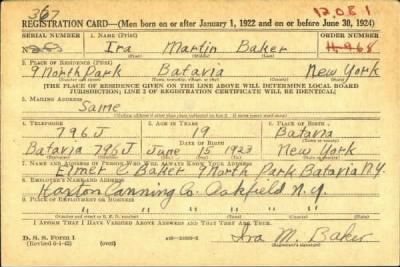 367
12081
REGISTRATION CARD—(Men born on or after January 1, 1922 and on or before June 30, 1924)
SERIAL NUMBER 1. NAME (Print) ORDER NUMBER
N- Ira Martin Baker 11968
(First) (Middle) (Last)
2. PLACE OF RESIDENCE (Print)
9 North Park Batavia New York
(Number and street) (Town, township, village, or city) (County) (State)
[THE PLACE OF RESIDENCE GIVEN ON THE LINE ABOVE WILL DETERMINE LOCAL BOARD
JURISDICTION; LINE 2 OF REGISTRATION CERTIFICATE WILL BE IDENTICAL]
3. MAILING ADDRESS
Same
4. TELEPHONE 5. AGE IN YEARS 6. PLACE OF BIRTH
796J 19 Batavia
DATE OF BIRTH
Batavia 796J June 15 1923 New York
7. NAME AND ADDRESS OF PERSON WHO WILL ALWAYS KNOW YOUR ADDRESS
Elmer C Baker 9 North Park Batavia N.Y.
8. EMPLOYER'S NAME AND ADDRESS
Haxton Canning Co. Oakfield N.Y.
9. PLACE OF EMPLOYMENT OR BUSINESS
" " " " "
I AFFIRM THAT I HAVE VERIFIED ABOVE ANSWERS AND THAT THEY ARE TRUE.
D. S. S. Form 1
(Revised 6-1-42) (over) Ira M. Baker
(Registrant's signature)